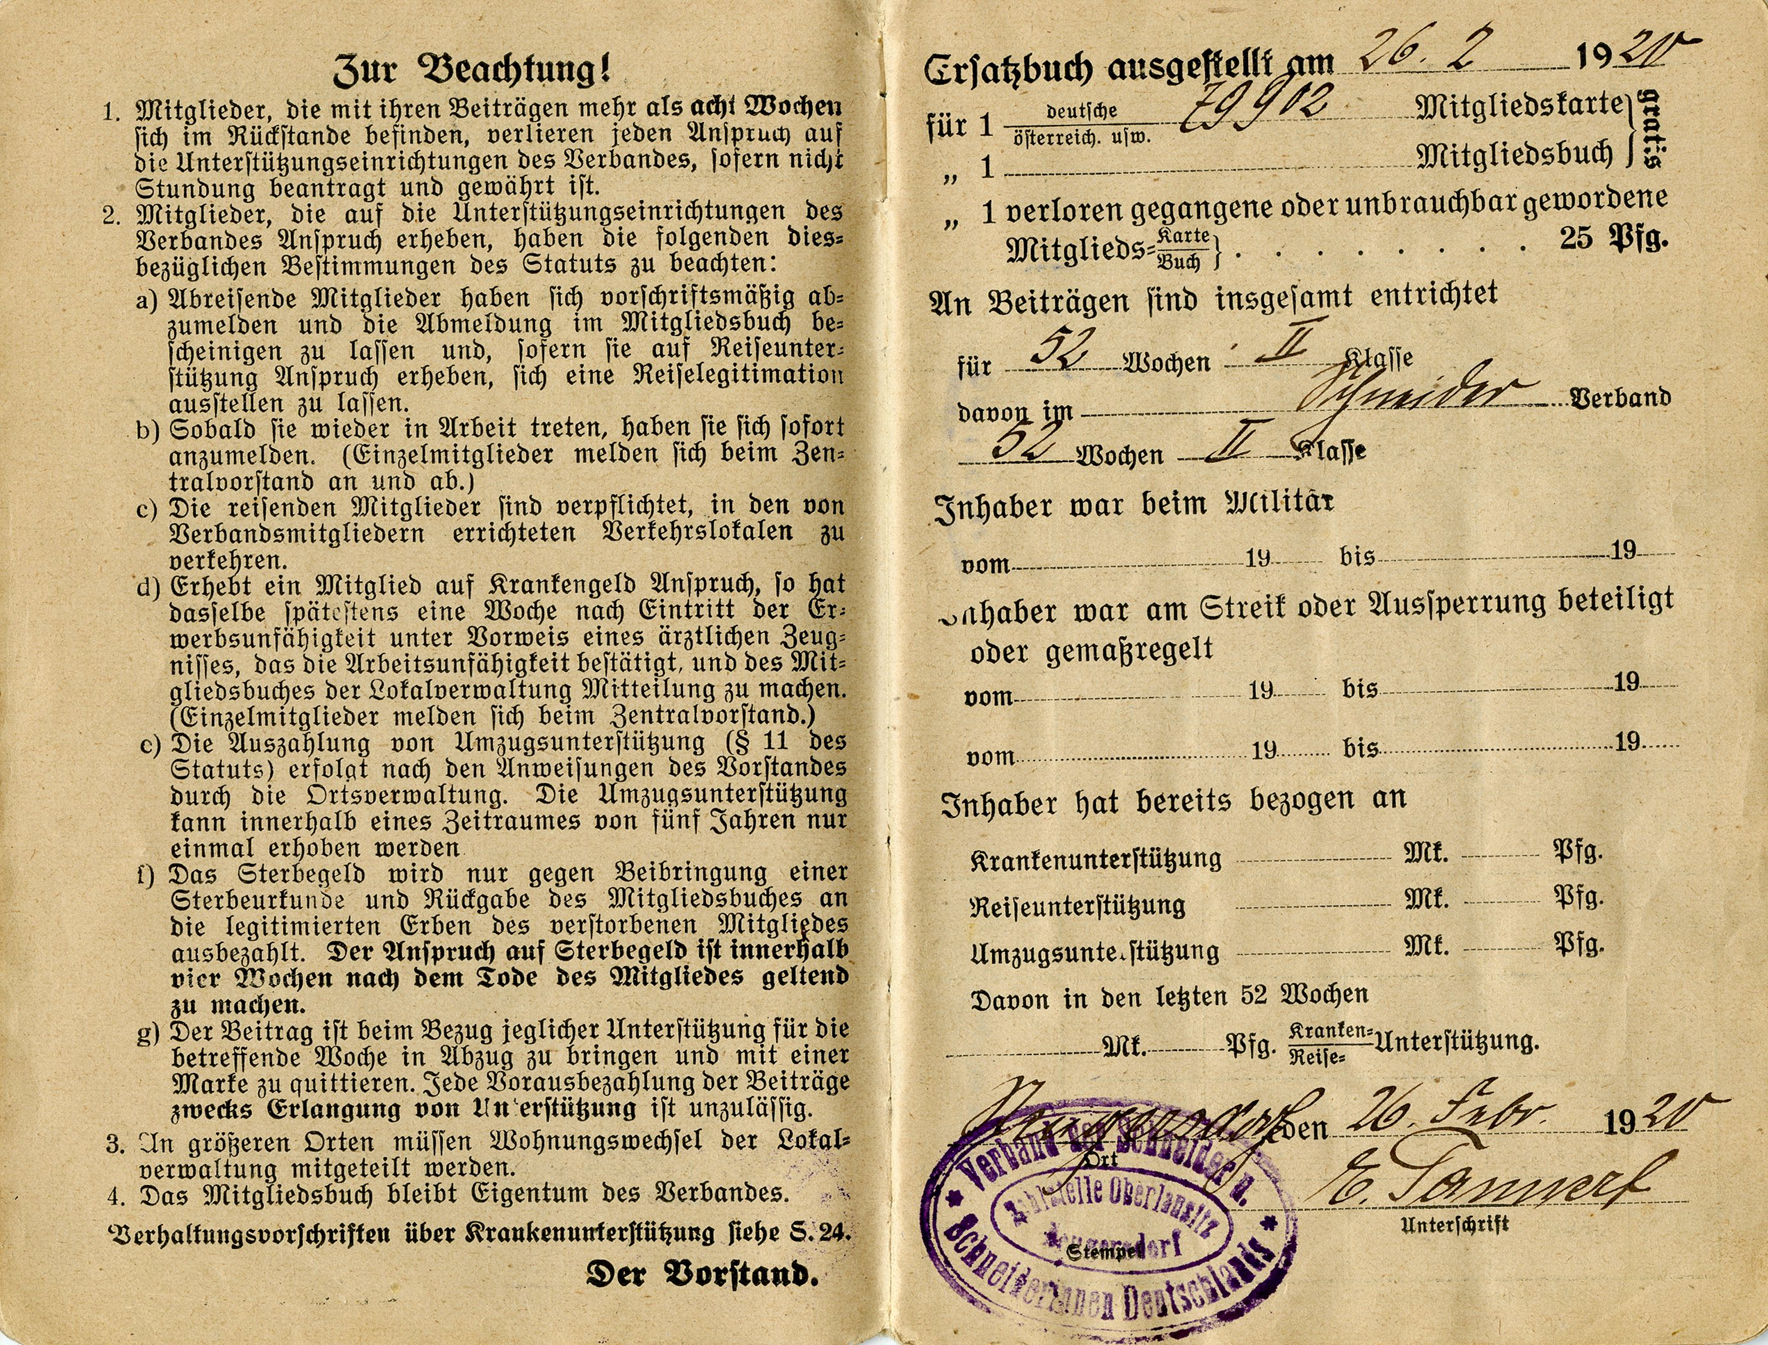 Zur Beachtung!
1. Mitglieder, die mit ihren Beiträgen mehr als acht Wochen
sich im Rückstande befinden, verlieren jeden Anspruch auf
die Unterstützungseinrichtungen des Verbandes, sofern nicht
Stundung beantragt und gewährt ist.
2. Mitglieder, die auf die Unterstützungseinrichtungen des
Verbandes Anspruch erheben, haben die folgenden dies-
bezüglichen Bestimmungen des Statuts zu beachten:
a) Abreisende Mitglieder haben sich vorschriftsmäßig ab-
zumelden und die Abmeldung im Mitgliedsbuch be-
scheinigen zu lassen und, sofern sie auf Reiseunter-
stützung Anspruch erheben, sich eine Reiselegitimation
ausstellen zu lassen.
b) Sobald sie wieder in Arbeit treten, haben sie sich sofort
anzumelden. (Einzelmitglieder melden sich beim Zen-
tralvorstand an und ab.)
c) Die reisenden Mitglieder sind verpflichtet, in den von
Verbandsmitgliedern errichteten Verkehrslokalen zu
verkehren.
d) Erhebt ein Mitglied auf Krankengeld Anspruch, so hat
dasselbe spätestens eine Woche nach Eintritt der Er-
werbsunfähigkeit unter Vorweis eines ärztlichen Zeug-
nisses, das die Arbeitsunfähigkeit bestätigt, und des Mit-
gliedsbuches der Lokalverwaltung Mitteilung zu machen.
(Einzelmitglieder melden sich beim Zentralvorstand.)
e) Die Auszahlung von Umzugsunterstützung (§ 11 des
Statuts) erfolgt nach den Anweisungen des Vorstandes
durch die Ortsverwaltung. Die Umzugsunterstützung
kann innerhalb eines Zeitraumes von fünf Jahren nur
einmal erhoben werden
f) Das Sterbegeld wird nur gegen Beibringung einer
Sterbeurkunde und Rückgabe des Mitgliedsbuches an
die legitimierten Erben des verstorbenen Mitgliedes
ausbezahlt. Der Anspruch auf Sterbegeld ist innerhalb
vier Wochen nach dem Tode des Mitgliedes geltend
zu machen.
g) Der Beitrag ist beim Bezug jeglicher Unterstützung für die
betreffende Woche in Abzug zu bringen und mit einer
Marke zu quittieren. Jede Vorausbezahlung der Beiträge
zwecks Erlangung von Unterstützung ist unzulässig.
3. In größeren Orten müssen Wohnungswechsel der Lokal-
verwaltung mitgeteilt werden.
4. Das Mitgliedsbuch bleibt Eigentum des Verbandes.
Verhaltungsvorschriften über Krankenunterstützung siehe S. 24.
Der Vorstand.
Ersatzbuch ausgestellt am 26. 2 1920
für 1 deutsche 79902 Mitgliedskarte
österreich. usw.
gratis
„ 1 Mitgliedsbuch
„ 1 verloren gegangene oder unbrauchbar gewordene
Mitglieds- Karte
Buch . . . . . . . . 25 Pfg.
An Beiträgen sind insgesamt entrichtet
für 52 Wochen II Klasse
davon im Schneider Verband
52 Wochen II Klasse
Inhaber war beim Militär
vom 19 bis 19
Inhaber war am Streik oder Aussperrung beteiligt
oder gemaßregelt
vom 19 bis 19
vom 19 bis 19
Inhaber hat bereits bezogen an
Krankenunterstützung Mk. Pfg.
Reiseunterstützung Mk. Pfg.
Umzugsunterstützung Mk. Pfg.
Davon in den letzten 52 Wochen
Mk. Pfg. Kranken-
Reise- Unterstützung.
Neugersdorf den 26. Febr. 1920
Ort
Verband der Schneider u.
Schneiderinnen Deutschlands
Zahlstelle Oberlausitz
Neugersdorf
Stempel
E. Tannert
Unterschrift